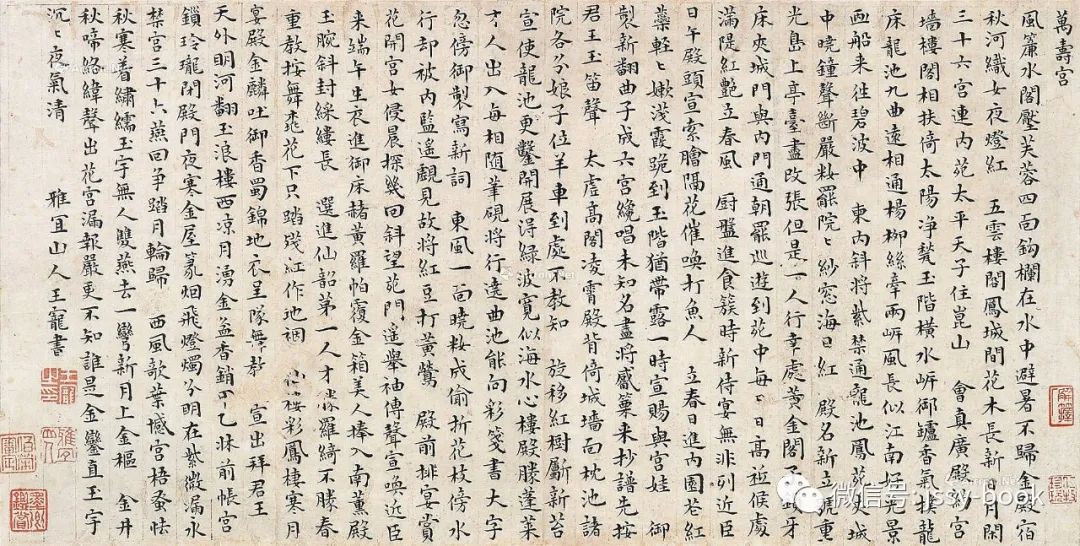 萬壽宮
風簾水閣壓芙蓉四面鈎欄在水中避暑不歸金殿宿
秋河織女夜燈紅 五雲樓閣鳳城間花木長新日月閑
三十六宮連內苑太平天子住崑山 會真廣殿約宮
墻樓閣相扶倚太陽淨甃玉階橫水岍御鑪香氣撲龍
床龍池九曲遠相通楊柳絲牽兩岍風長似江南好光景
画船来往碧波中 東內斜將紫禁通龍池鳳苑夾城
中曉鐘聲斷嚴粧罷院〻紗窓海日紅 殿名新立號重
光島上亭臺盡改張但是一人行幸處黃金閣子鎖牙
床夾城門與內門通朝罷巡遊到苑中每〻日高祗候處
滿隄紅艷立春風 厨盤進食簇時新侍宴無非列近臣
日午殿頭宣索膾隔花催喚打魚人 立春日進內園花紅
蘂輕〻嫩淺霞跪到玉階猶帶露一時宣賜與宮娃 御
製新翻曲子成六宮纔唱未知名盡將觱篥来抄譜先按
君王玉笛聲 太虛高閣凌霄殿背倚城墻面枕池諸
院各分娘子位羊車到處不教知 旋移紅樹斸新苔
宣使龍池更鑿開展得綠波寬似海水心樓殿勝蓬萊
才人出入每相随筆硯將行遶曲池能向彩箋書大字
忽傍御製寫新詞 東風一面曉粧成偷折花枝傍水
行却被內監遙覷見故將紅豆打黃鶯 殿前排宴賞
花開宮女侵晨探幾回斜望苑門遙舉袖傳聲宣喚近臣
来端午生衣進御床赭黃羅帕覆金箱美人捧入南薰殿
玉腕斜封綵縷長 選進仙韶第一人才勝羅綺不勝春
重教按舞桃花下只踏殘紅作地裀 仙樓彩鳳棲寒月
宴殿金麟吐御香蜀錦地衣呈隊舞教 宣出拜君王
天外明河翻玉浪樓西凉月湧金盆香銷甲乙牀前帳宮
鎖玲瓏閑殿門夜寒金屋篆烟飛燈燭分明在紫微漏永
禁宮三十六燕回爭踏月輪歸 西風敲葉撼宮梧蚤怯
秋寒着繡繻玉宇無人雙燕去一彎新月上金樞 金井
秋啼絡緯聲出花宮漏報嚴更不知誰是金鑾直玉宇
沉〻夜氣清 雅宜山人王寵書
王寵之印
微信号: jssy-book